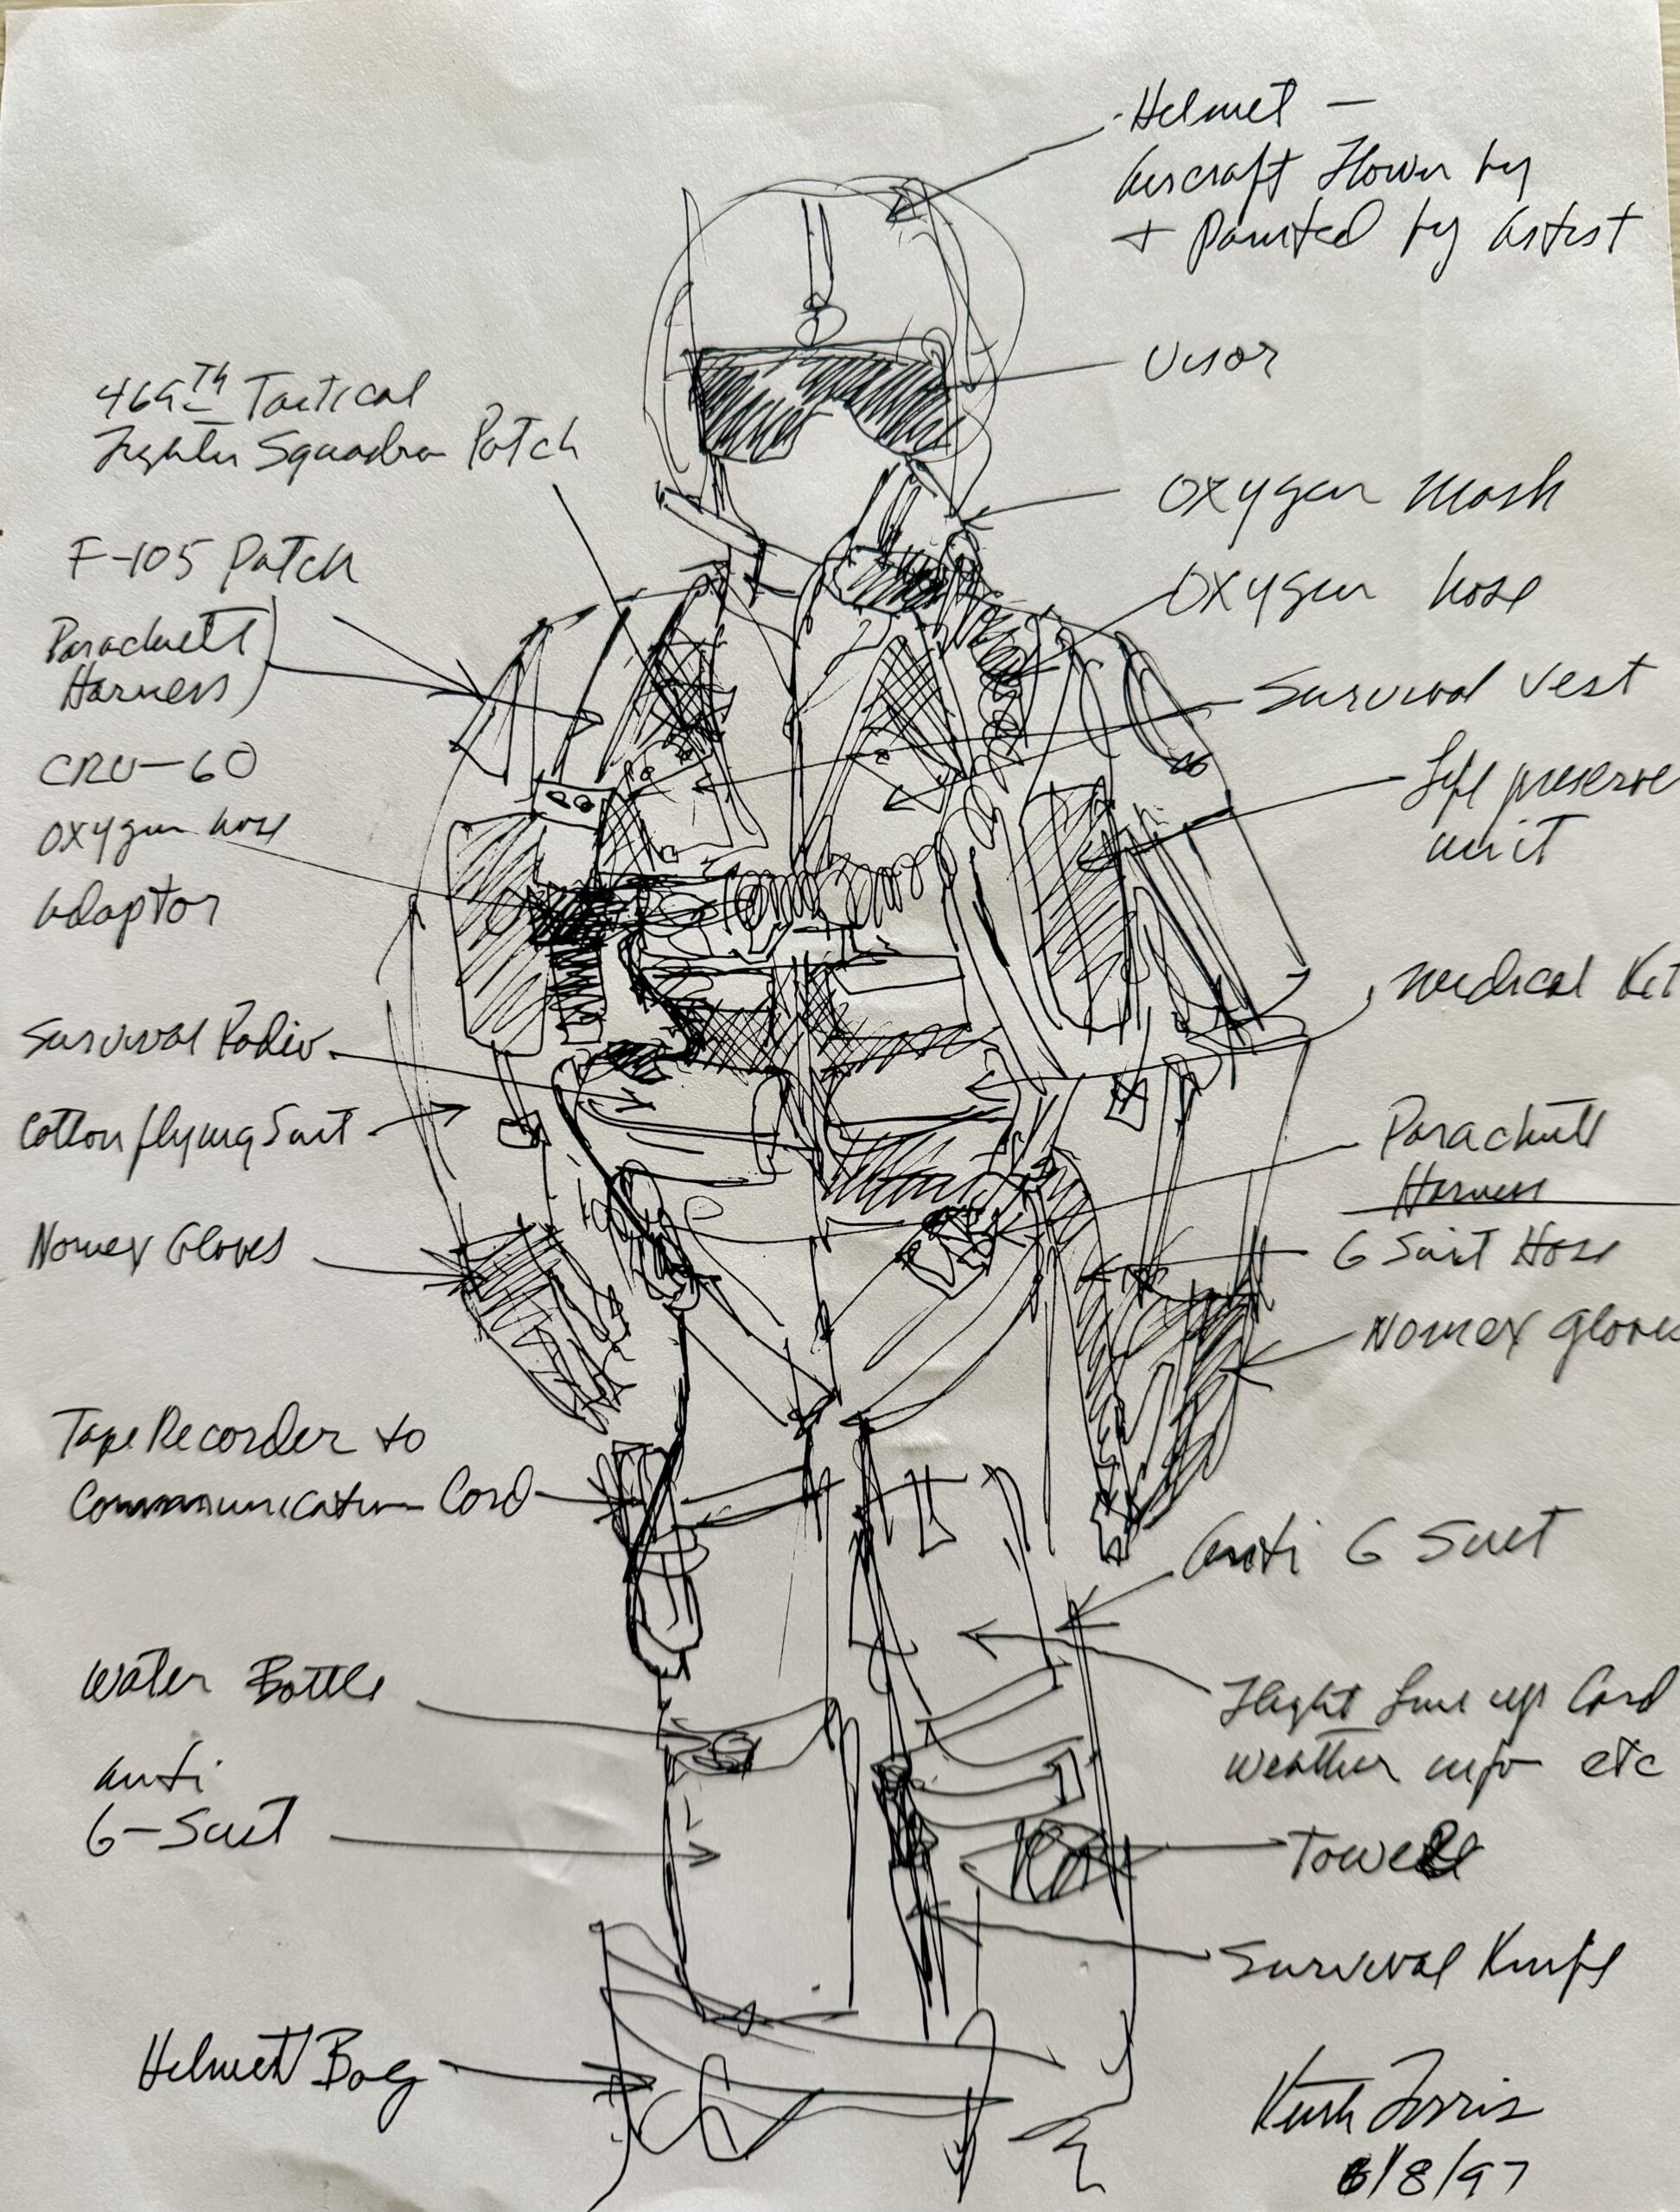 Helmet —
Aircraft Flown by
+ Painted by Artist
Visor
Oxygen Mask
Oxygen hose
Survival Vest
Life preserve
unit
Medical Kit
Parachute
Harness
G Suit Hose
Nomex Gloves
Anti G Suit
Flight Line up Card
Weather info etc
Towel
Survival Knife
469TH Tactical
Fighter Squadron Patch
F-105 Patch
Parachute
Harness
CRU-60
Oxygen hose
Adaptor
Survival Radio
Cotton flying Suit
Nomex Gloves
Tape Recorder to
Communication Cord
Water Bottle
Anti
G-Suit
Helmet Bag
Keith Ferris
6/8/97